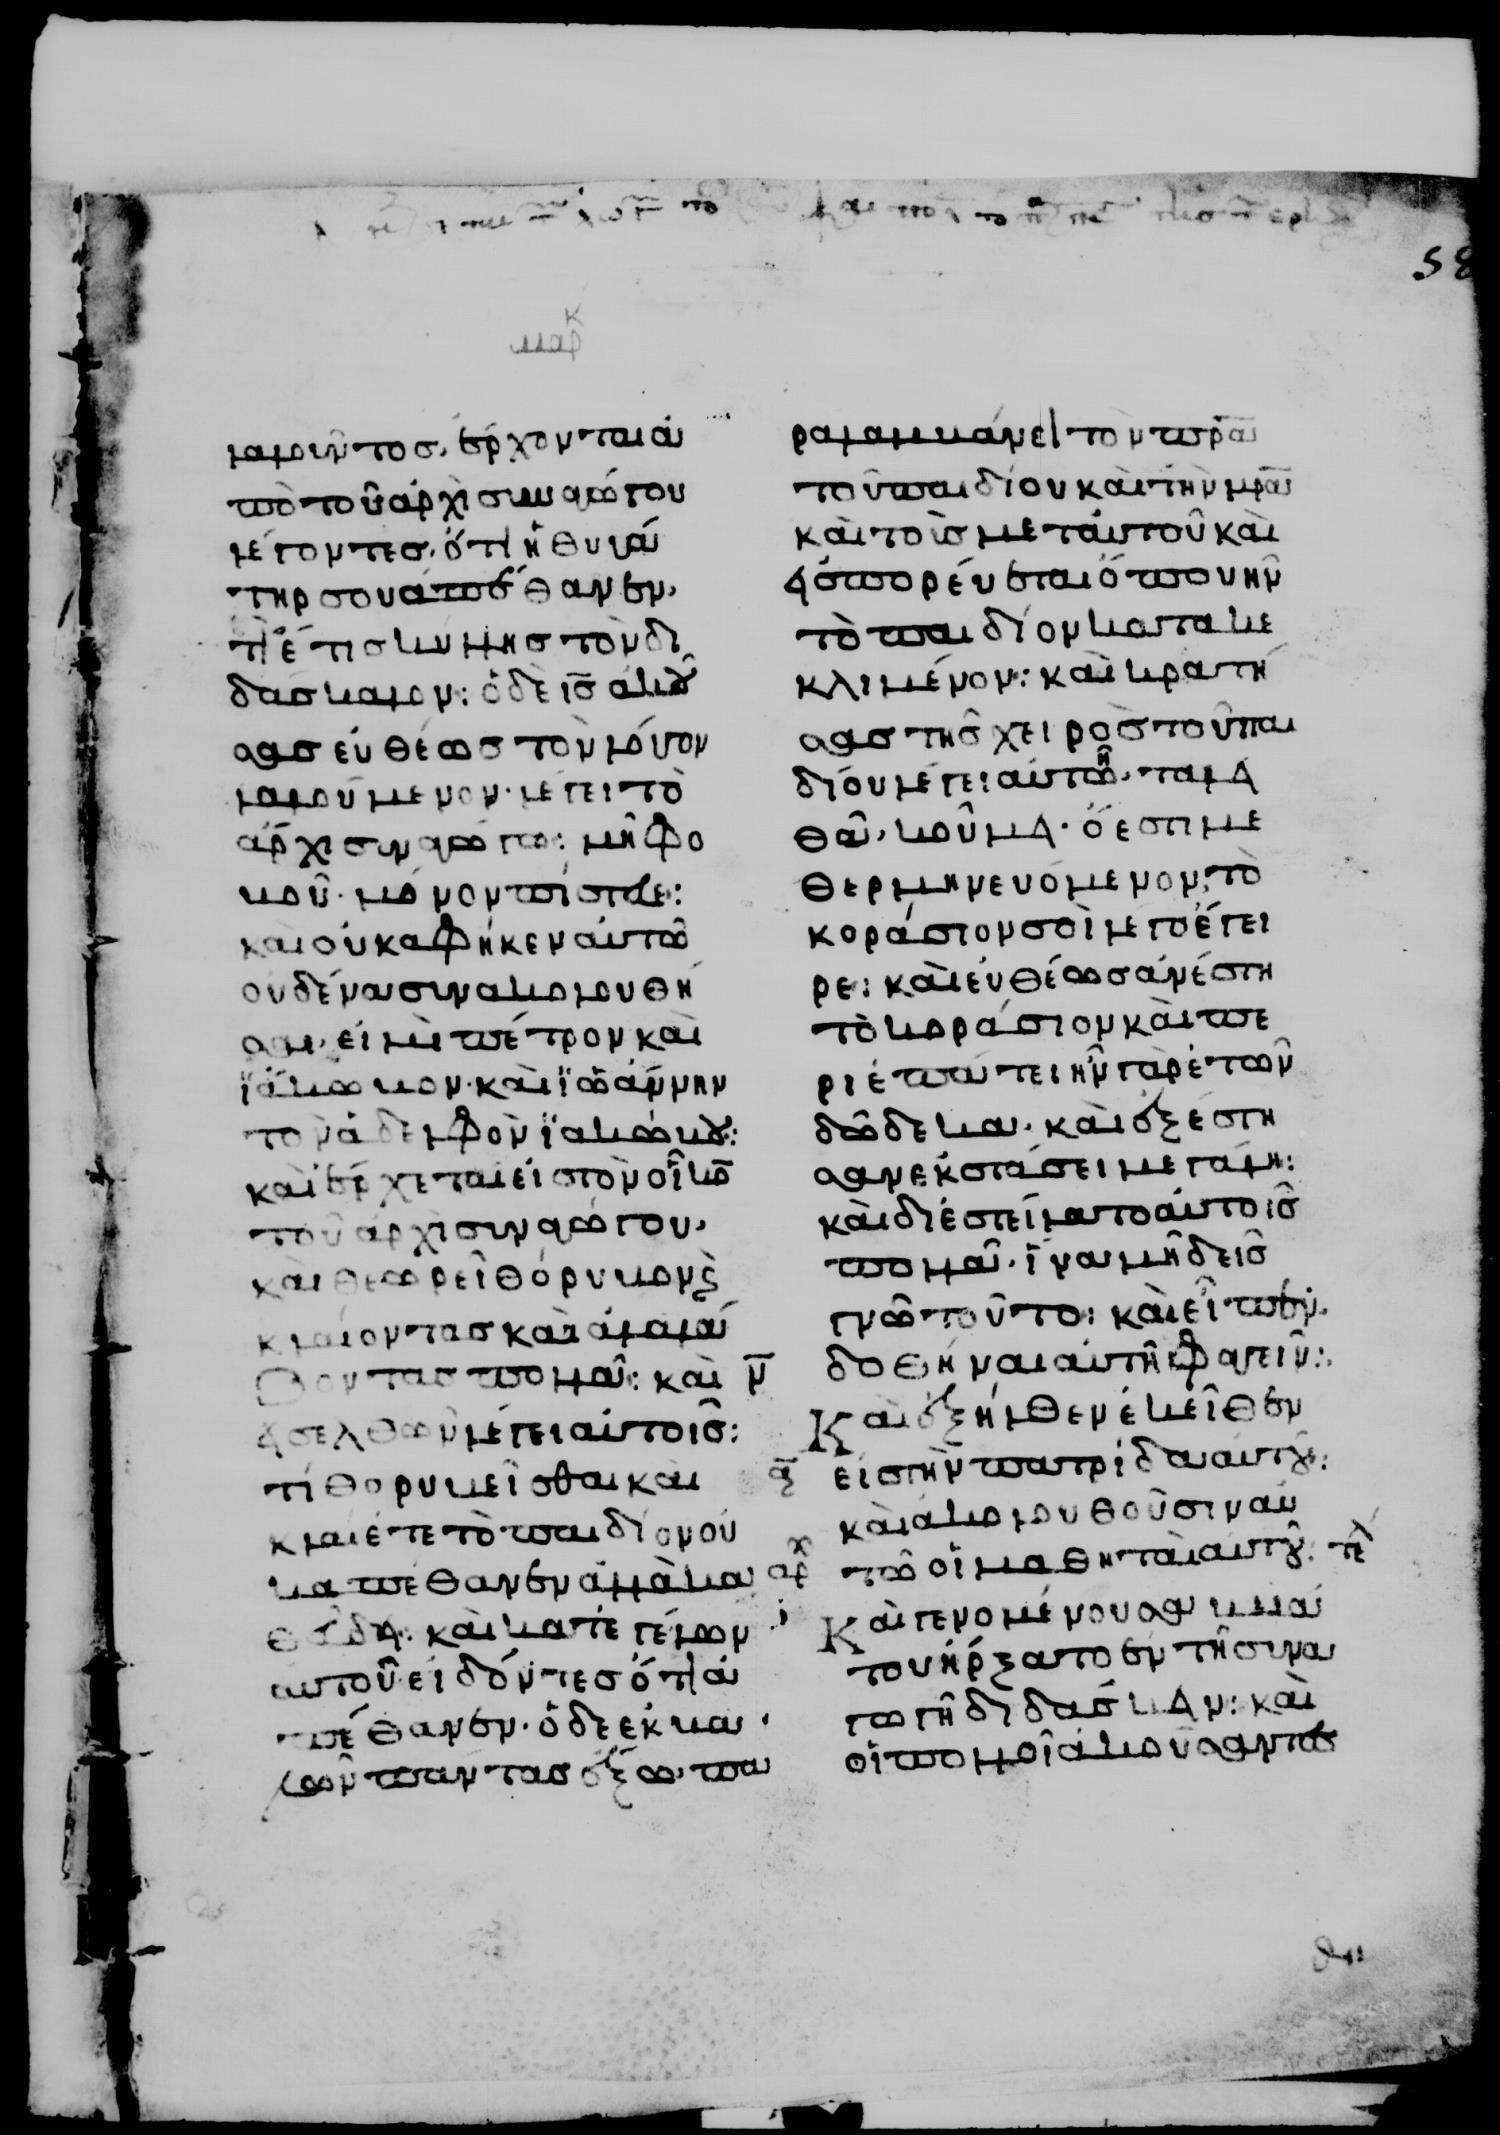 58
μαρκ
λαλουντοσ, ἔρχονται ἀ
πὸ τοῦ ἀρχισυναγώγου
λέγοντεσ, ὅτι ἡ θυγά
τηρ σου ἀπέθανεν,
τί ἔτι σκύλλησ τὸν δι
δάσκαλον: ὁ δὲ ισ ἀκού
σασ εὐθέωσ τὸν λόγον
λαλούμενον· λέγει τῶ
ἀρχισυναγώγω: μὴ φο
βοῦ· μόνον πίστευε:
καὶ οὐκ ἀφῆκεν αὐτῶ
οὐδένα συνακολουθῆ
σαι, εἰ μὴ πέτρον καὶ
ϊάκωβον· καὶ ϊωάννην
τὸν ἀδελφὸν ϊακώβου:
καὶ ἔρχεται εἰσ τὸν οἶκο̄
τοῦ ἀρχισυναγώγου,
καὶ θεωρεῖ θόρυβον ϗ
κλαίοντασ καὶ ἀλαλά
ζοντασ πολλά: καὶ
εἰσελθὼν λέγει αὐτοῖσ:
τί θορυβεῖσθαι καὶ
κλαίετε τὸ παιδίον οὐ
κ ἀπέθανεν ἀλλὰ κα
θεύδει· καὶ κατεγέλων
αὐτοῦ εἰδόντεσ ὅτι ἀ
πέθανεν· ὁ δὲ ἐκβα
λὼν πάντασ ἔξω, πα
ραλαμβάνει τὸν πρ̄α
τοῦ παιδίου καὶ τὴν μρ̄α
καὶ τοὺσ μετ αὐτοῦ καὶ
εἰσπορεύεται ὅπου ἦν
τὸ παιδίον κατακε
κλιμένον: καὶ κρατή
σασ τῆσ χειρὸσ τοῦ παι
δίου λέγει αὐτῆ, ταλι
θὰ, κοῦμι· ὅ ἐστι με
θερμηνευόμενον, τὸ
κοράσιον σοὶ λέγο ἔγει
ρε: καὶ εὐθέωσ ἀνέστη
τὸ κοράσιον καὶ πε
ριεπάτει ἦν γὰρ ἐτῶν
δώδεκα· καὶ ἐξέστη
σαν ἐκστάσει μεγάλη:
καὶ διεστείλατο αὐτοῖσ
πολλὰ· ἵνα μηδεὶσ
γνῶ τοῦτο: καὶ εἶπεν
δοθῆναι αὐτῆ φαγεῖν:
Καὶ ἐξῆλθεν ἐκεῖθεν
εἰσ τὴν πατρίδα αὐτοῦ:
καὶ ἀκολουθοῦσιν αὐ
τῶ οἱ μαθηταὶ αὐτοῦ: τελ
αρχ
Καὶ γενομένου σαββά
του ἤρξατο ἐν τῆ συνα
γωγῆ διδάσκειν: καὶ
οἱ πολλοὶ ἀκούσαντεσ